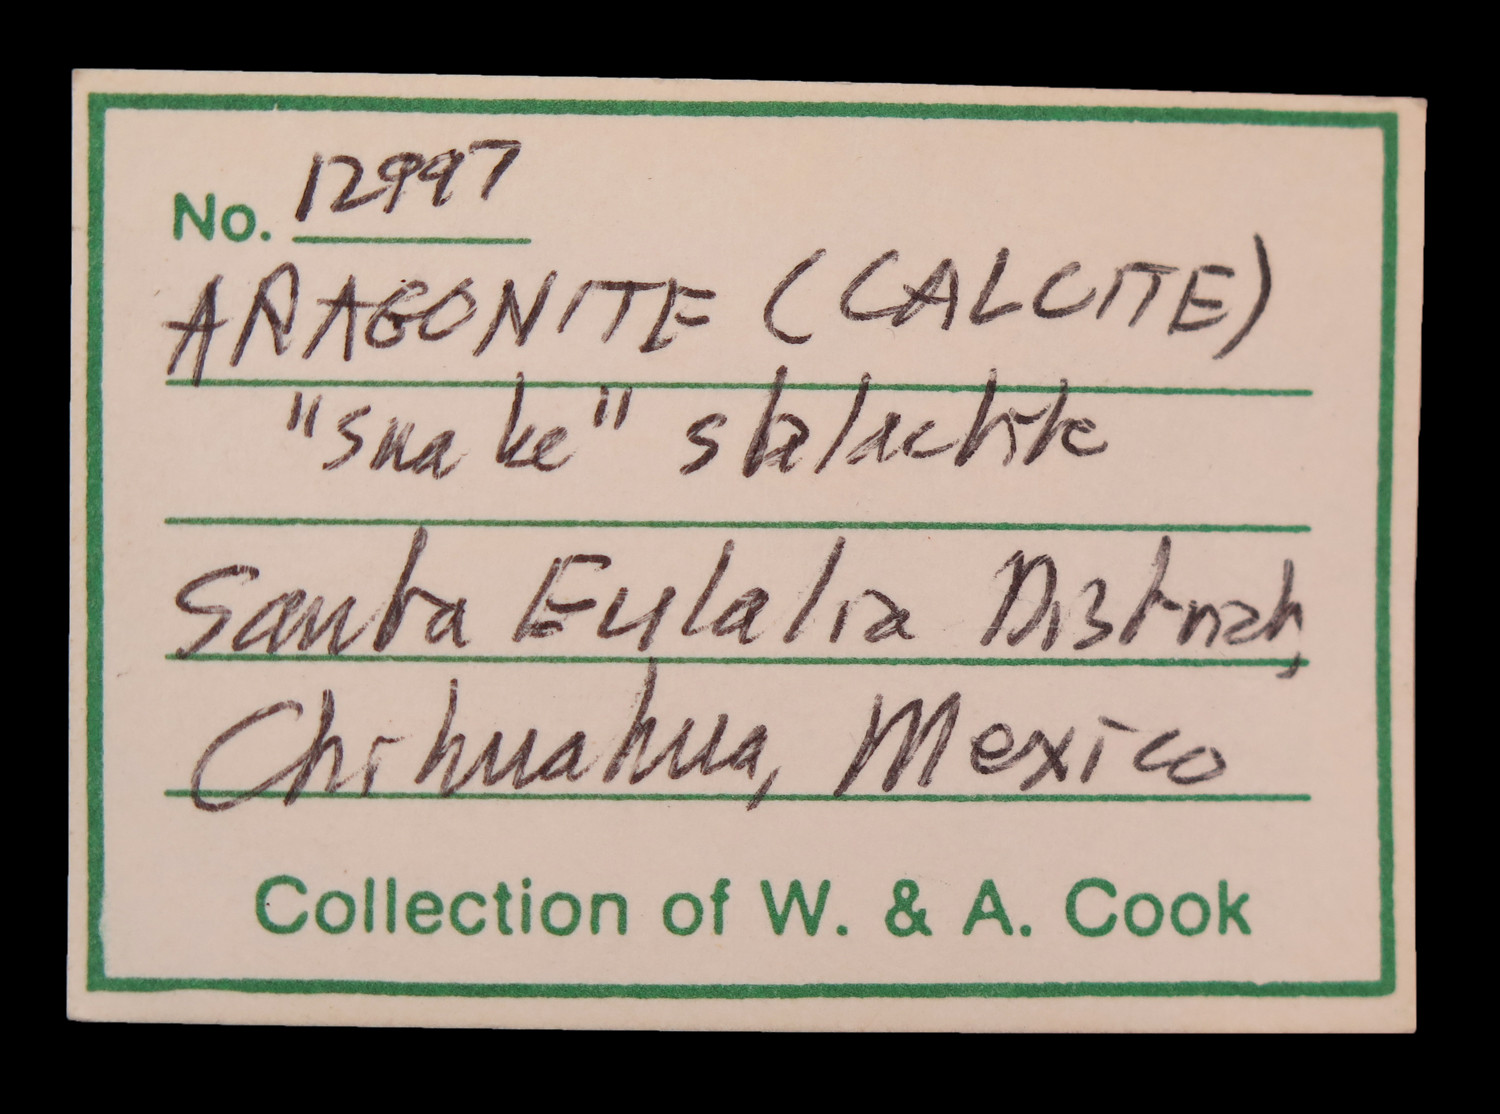 No. 12997
ARAGONITE (CALCITE)
"snake" stalactite
Santa Eulalia District,
Chihuahua, Mexico
Collection of W. & A. Cook